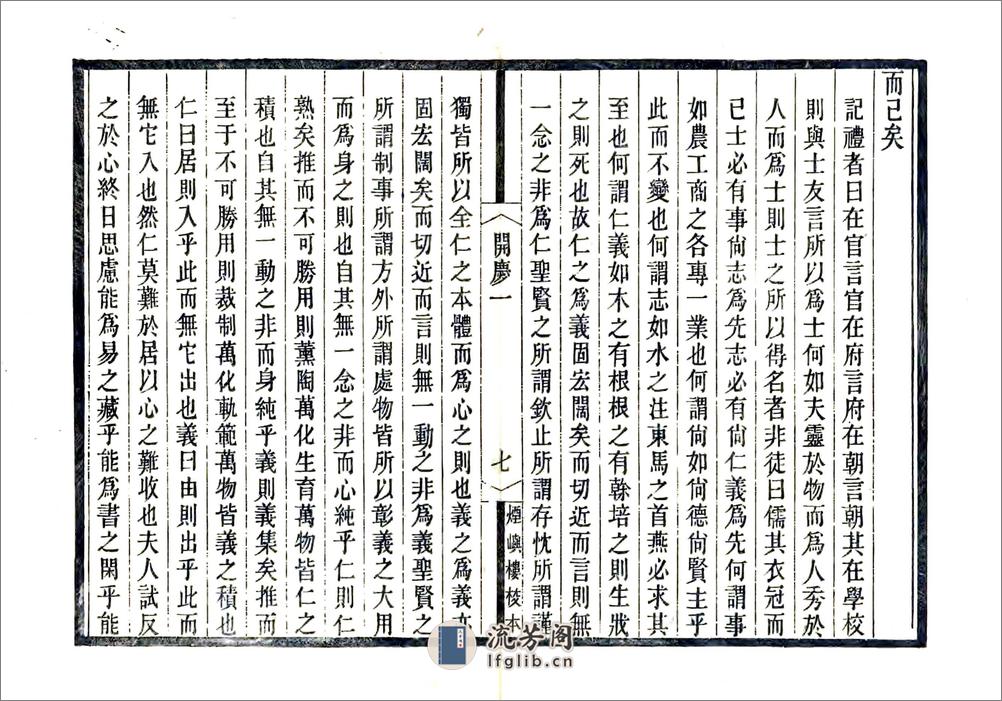 而已矣
記禮者曰在官言官在府言府在朝言朝其在學校
則與士友言所以爲士何如夫靈於物而爲人秀於
人而爲士則士之所以得名者非徒曰儒其衣冠而
已士必有事尙志爲先志必有尙仁義爲先何謂事
如農工商之各專一業也何謂尙如尙德尙賢主乎
此而不變也何謂志如水之注東馬之首燕必求其
至也何謂仁義如木之有根根之有榦培之則生戕
之則死也故仁之爲義固宏闊矣而切近而言則無
一念之非爲仁聖賢之所謂欽止所謂存忱所謂謹
開慶一
七
煙嶼樓校本
獨皆所以全仁之本體而爲心之則也義之爲義亦
固宏闊矣而切近而言則無一動之非爲義聖賢之
所謂制事所謂方外所謂處物皆所以彰義之大用
而爲身之則也自其無一念之非而心純乎仁則仁
熟矣推而不可勝用則薰陶萬化生育萬物皆仁之
積也自其無一動之非而身純乎義則義集矣推而
至于不可勝用則裁制萬化軌範萬物皆義之積也
仁曰居則入乎此而無它出也義曰由則出乎此而
無它入也然仁莫難於居以心之難收也夫人試反
之於心終日思慮能爲易之藏乎能爲書之閑乎能
流芳阁
lfglib.cn